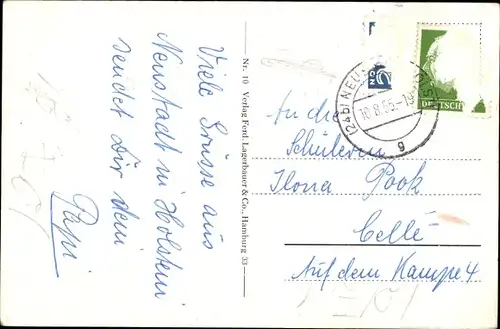 Viele Grüsse aus
Neustadt in Holstein
sendet Dir dein
Papi
Nr. 10 Verlag Ferd. Lagerbauer & Co., Hamburg 33
(24b) NEU
10.8.55
g
DEUTSCH
An die
Schülerin
Ilona Pook
Celle
Auf dem Kampe 4